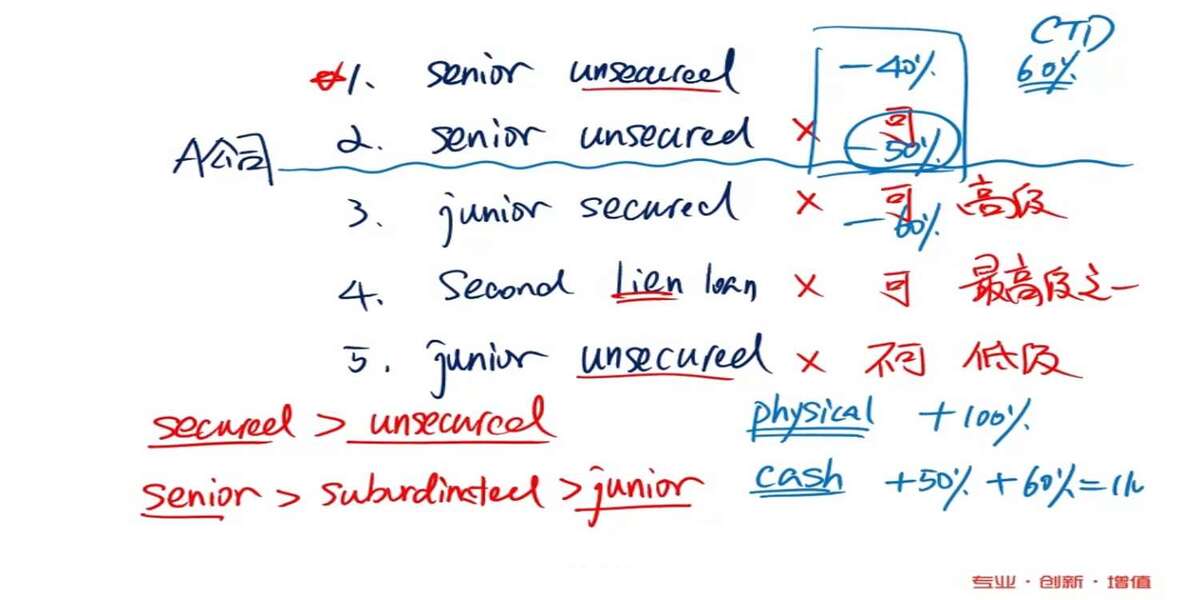 CTD
1. senior unsecured -40% 60%
2. senior unsecured × 可 -50%
A公司
3. junior secured × 可 高级 -60%
4. Second lien loan × 可 最高级之一
5. junior unsecured × 不可 低级
secured > unsecured physical +100%
senior > subordinated > junior cash +50% +60% =
专业·创新·增值